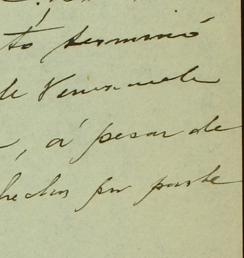 tó terminó
de Venezuela
, á pesar de
hechos por parte